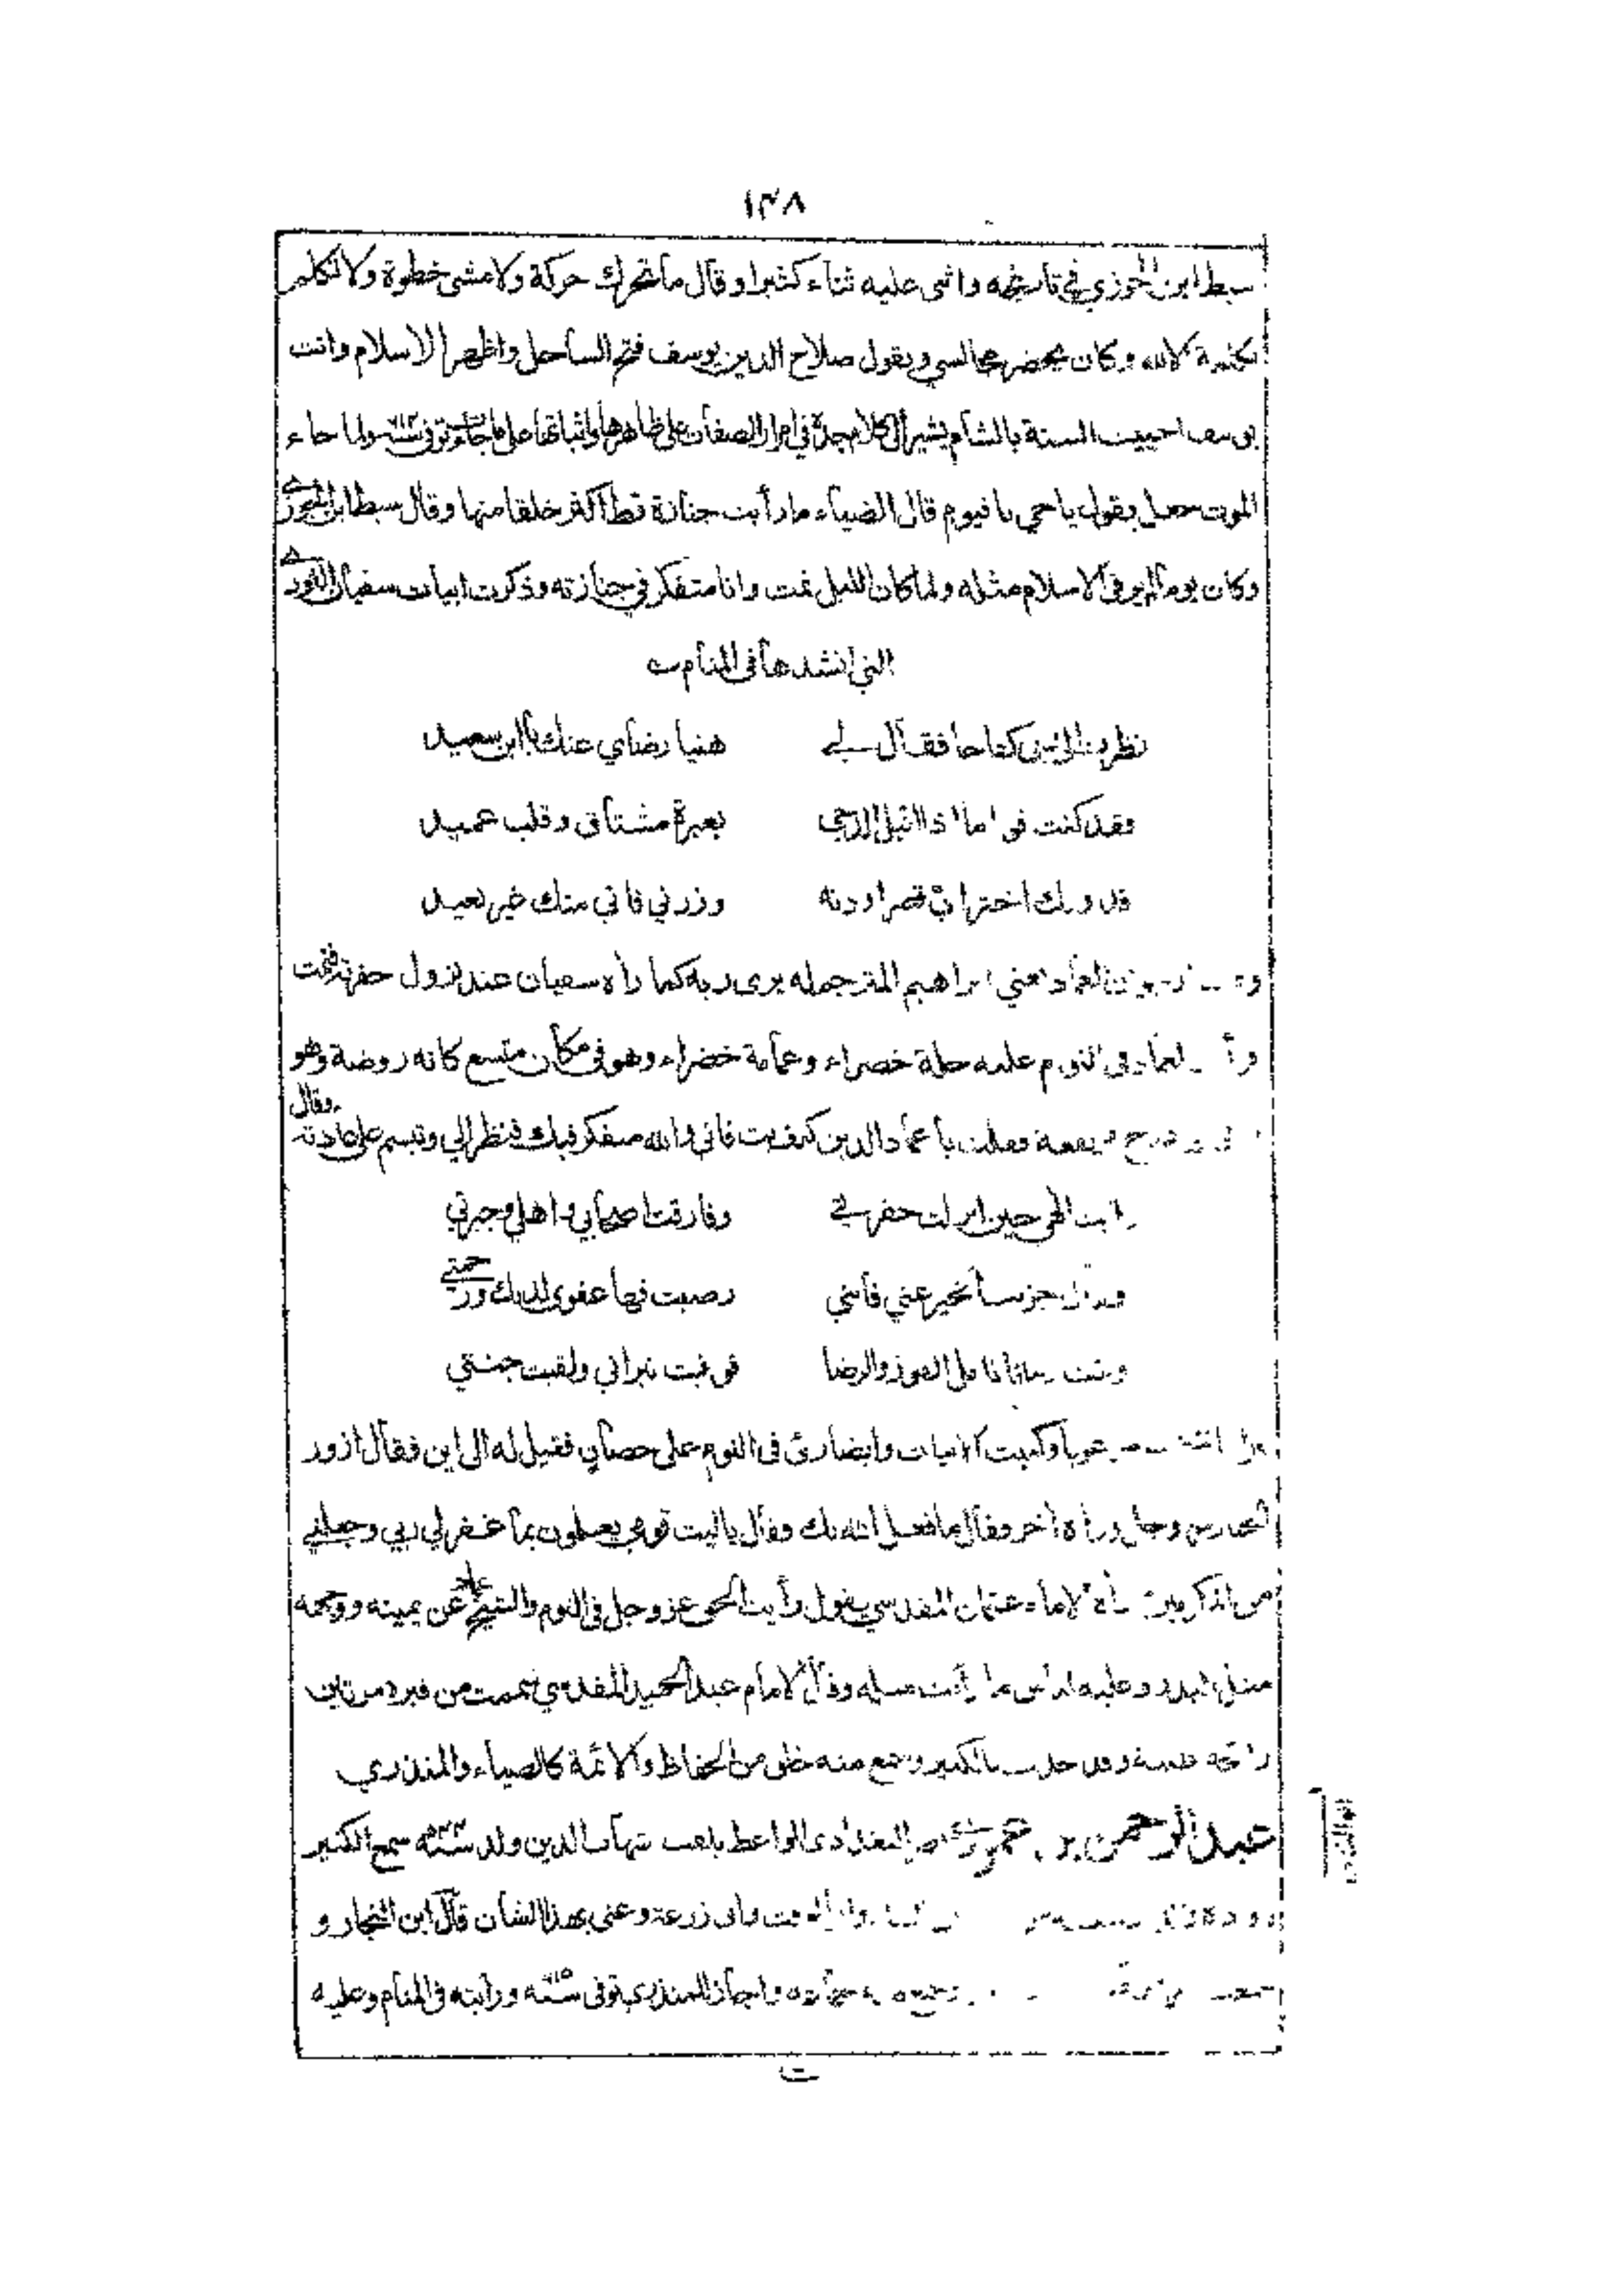 ١٣٨
سبط ابن الجوزي في تاريخه واثنى عليه ثناء كثيرا وقال ما تحرك حركة ولا مشى خطوة ولا تكلم
بكلمة الا لله وكان يحضر مجالسي ويقول صلاح الدين يوسف فتح الساحل واظهر الاسلام وانت
يوسف احييت السنة بالشام يشير الى كلام جده في امرار الصفات على ظاهرها واثباتها على ما جاءت وتوفي سنة ولما جاء
الموت جعل يقول يا حي يا قيوم قال الضياء ما رأيت جنازة قط اكثر خلقا منها وقال سبط ابن الجوزي
وكان يوما لم ير في الاسلام مثله ولما كان الليل نمت وانا متفكر في جنازته وذكرت ابيات سفيان الثوري
التي انشدها في المنام
نظرت الى ربي كفاحا فقال لي هنيا رضاي عنك يا ابن سعيد
فقد كنت قواما اذا اقبل الدجى بعبرة مشتاق وقلب عميد
فدونك اختر اي قصر اردته وزرني فاني منك غير بعيد
العماد يعني ابراهيم المترجم له يرى ربه كما رأه سفيان عند نزول حفرته فنمت
العماد في النوم عليه حلة خضراء وعمامة خضراء وهو في مكان متسع كانه روضة وهو
مرتفعة فقلت يا عماد الدين كيف بت فاني والله متفكر فيك فنظر الي وتبسم على عادته وقال
رايت الهي حين انزلت حفرتي وفارقت اصحابي واهلي وجيرتي
وقال جزيت الخير عني فانني رضيت فها عفوي لديك ورحمتي
زمانا تامل الفوز والرضا فوقيت نيراني ولقيت جنتي
مرعوبا وكتبت الابيات وايضا رئ في النوم على حصان فقيل له الى اين فقال ازور
وجل ورأه أخر فقال ما فعل الله بك فقال ياليت قومي يعلمون بما غفر لي ربي وجعلني
من المكرمين الامام عثمان المقدسي يقول رأيت الحق عز وجل في النوم والشيخ عماد عن يمينه ووجهه
مثل البدر وعليه لباس ما رأيت مثله وقال الامام عبد الحميد المقدسي شممت من قبره مرتين
رائحة طيبة وقد حدث بالكثير وسمع منه خلق من الحفاظ والائمة كالضياء والمنذري
عبد الرحمن بن عمر البغدادي الواعظ يلقب شهاب الدين ولد سنة سمع الكثير
وابي زرعة وعني بهذا الشان قال ابن النجار و
واجاز للمنذري توفي سنة ورايته في المنام وعليه
ت